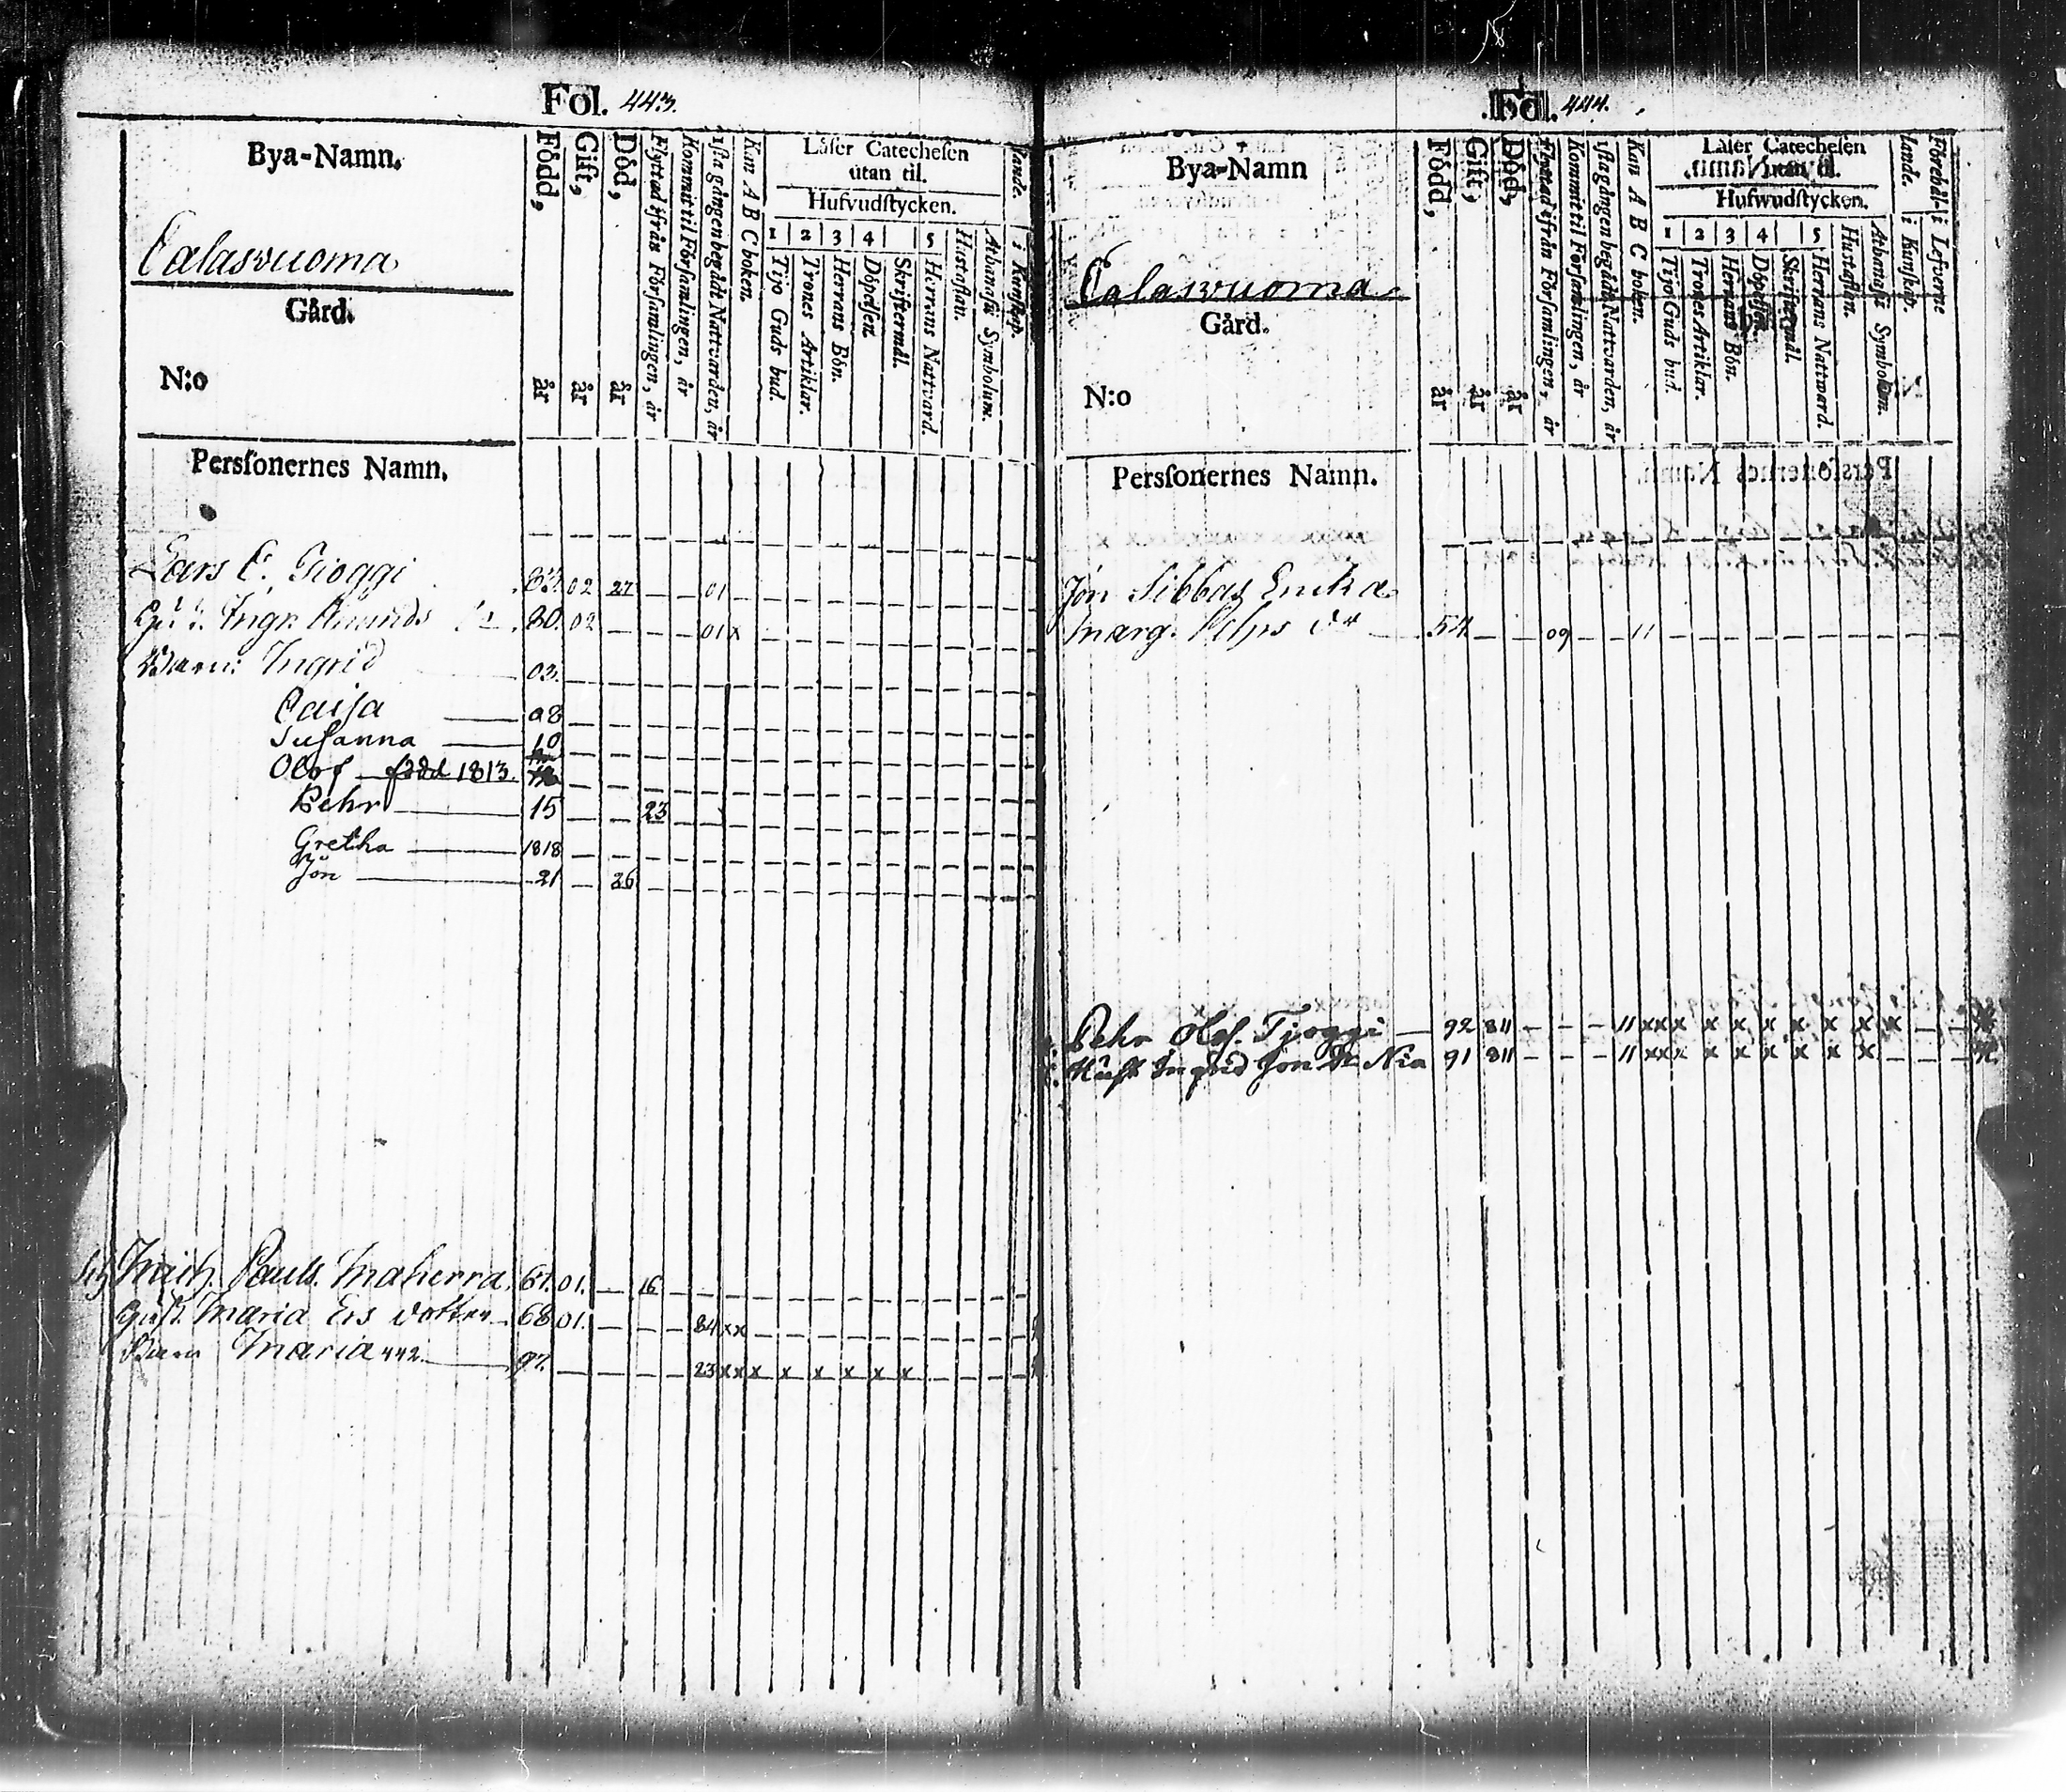 Fol. 443.
Bya-Namn.
Calasvuoma
Gård.
N:o
Persſonernes Namn.
Född, år
Gift, år
Död, år
Flyttad ifrån Förſamlingen, år
Kommit til Förſamlingen, år
1ſta gången begådt Nattvarden, år
Kan A B C boken.
Läſer Catecheſen
utan til.
Hufvudſtycken.
1 2 3 4 5
Tijo Guds bud.
Trones Artiklar.
Herrans Bön.
Döpelſen.
Skriftermål.
Herrans Nattvard.
Huſtaflan.
Athanaſii Symbolum.
i Kunſkap.
Lars Gioggi 02 27 01
Ingr. Amunds 80. 02 01 x
Barn: Ingrid 03.
Caisa 08
Suſanna 10
Olof född 1813.
Pehr 15 23
Gretha 1818
Jon 21 26
Mich. Pauls. Maherra. 67. 01. 16
Guſt. Maria Ers dotter 68 01. 84 xx
Barn Maria 442. 97. 23 x x x x x x x x
Fol. 444.
Bya-Namn
Calasvuoma
Gård.
N:o
Persſonernes Namn.
Född, år
Gift, år
Död, år
Flyttad ifrån Förſamlingen, år
Kommit til Förſamlingen, år
1ſta gången begådt Nattvarden, år
Kan A B C boken.
Läſer Catecheſen
utan til.
Hufwudſtycken.
1 2 3 4 5
Tijo Guds bud.
Trones Artiklar.
Herrans Bön.
Döpelſen.
Skriftermål.
Herrans Nattward.
Huſtaflan.
Athanaſii Symbolum.
Förehållande. i Kunſkap.
i Lefverne
Jon Sibbas Enka
Marg. 54 09 11
Pehr Olof. Tjoggi 92 811 11 x x x x x x x x x x
Huſt Ingrid Jon Dr Nia 91 811 11 x x x x x x x x x